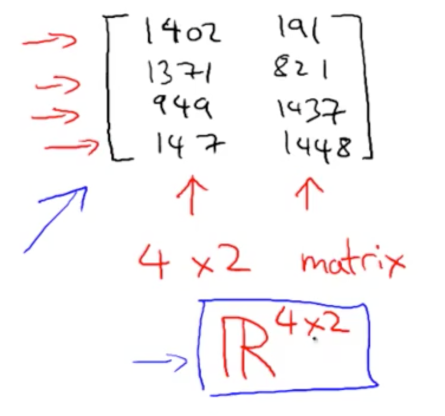 1402 191
1371 821
949 1437
147 1448
4 x 2 matrix
ℝ^4x2